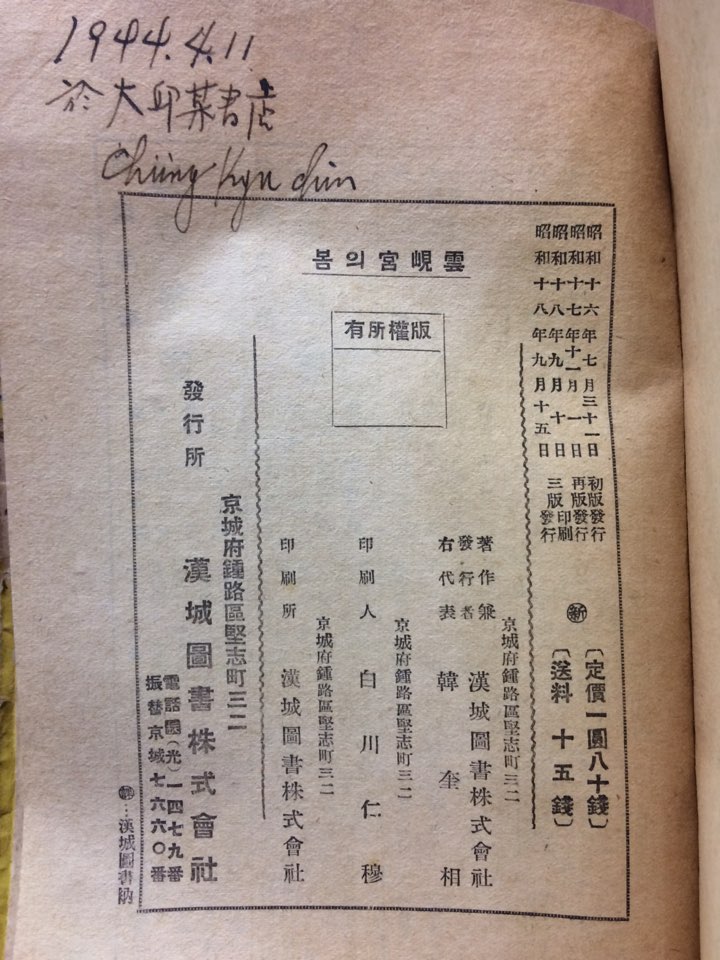 1944.4.11
於大邱某書店
Chung Kyu
雲峴宮의봄
版權所有
昭和十六年七月三十一日 初版發行
昭和十七年十一月一日 再版發行
昭和十八年九月十日 三版印刷
昭和十八年九月十五日 三版發行
新
〔定價一圓八十錢〕
〔送料 十五錢〕
京城府鍾路區堅志町三二
著作兼發行者 漢城圖書株式會社
右代表 韓奎相
京城府鍾路區堅志町三二
印刷人 白川仁穆
京城府鍾路區堅志町三二
印刷所 漢城圖書株式會社
京城府鍾路區堅志町三二
發行所 漢城圖書株式會社
電話(光)一四七九番
振替京城七六六〇番
…漢城圖書納